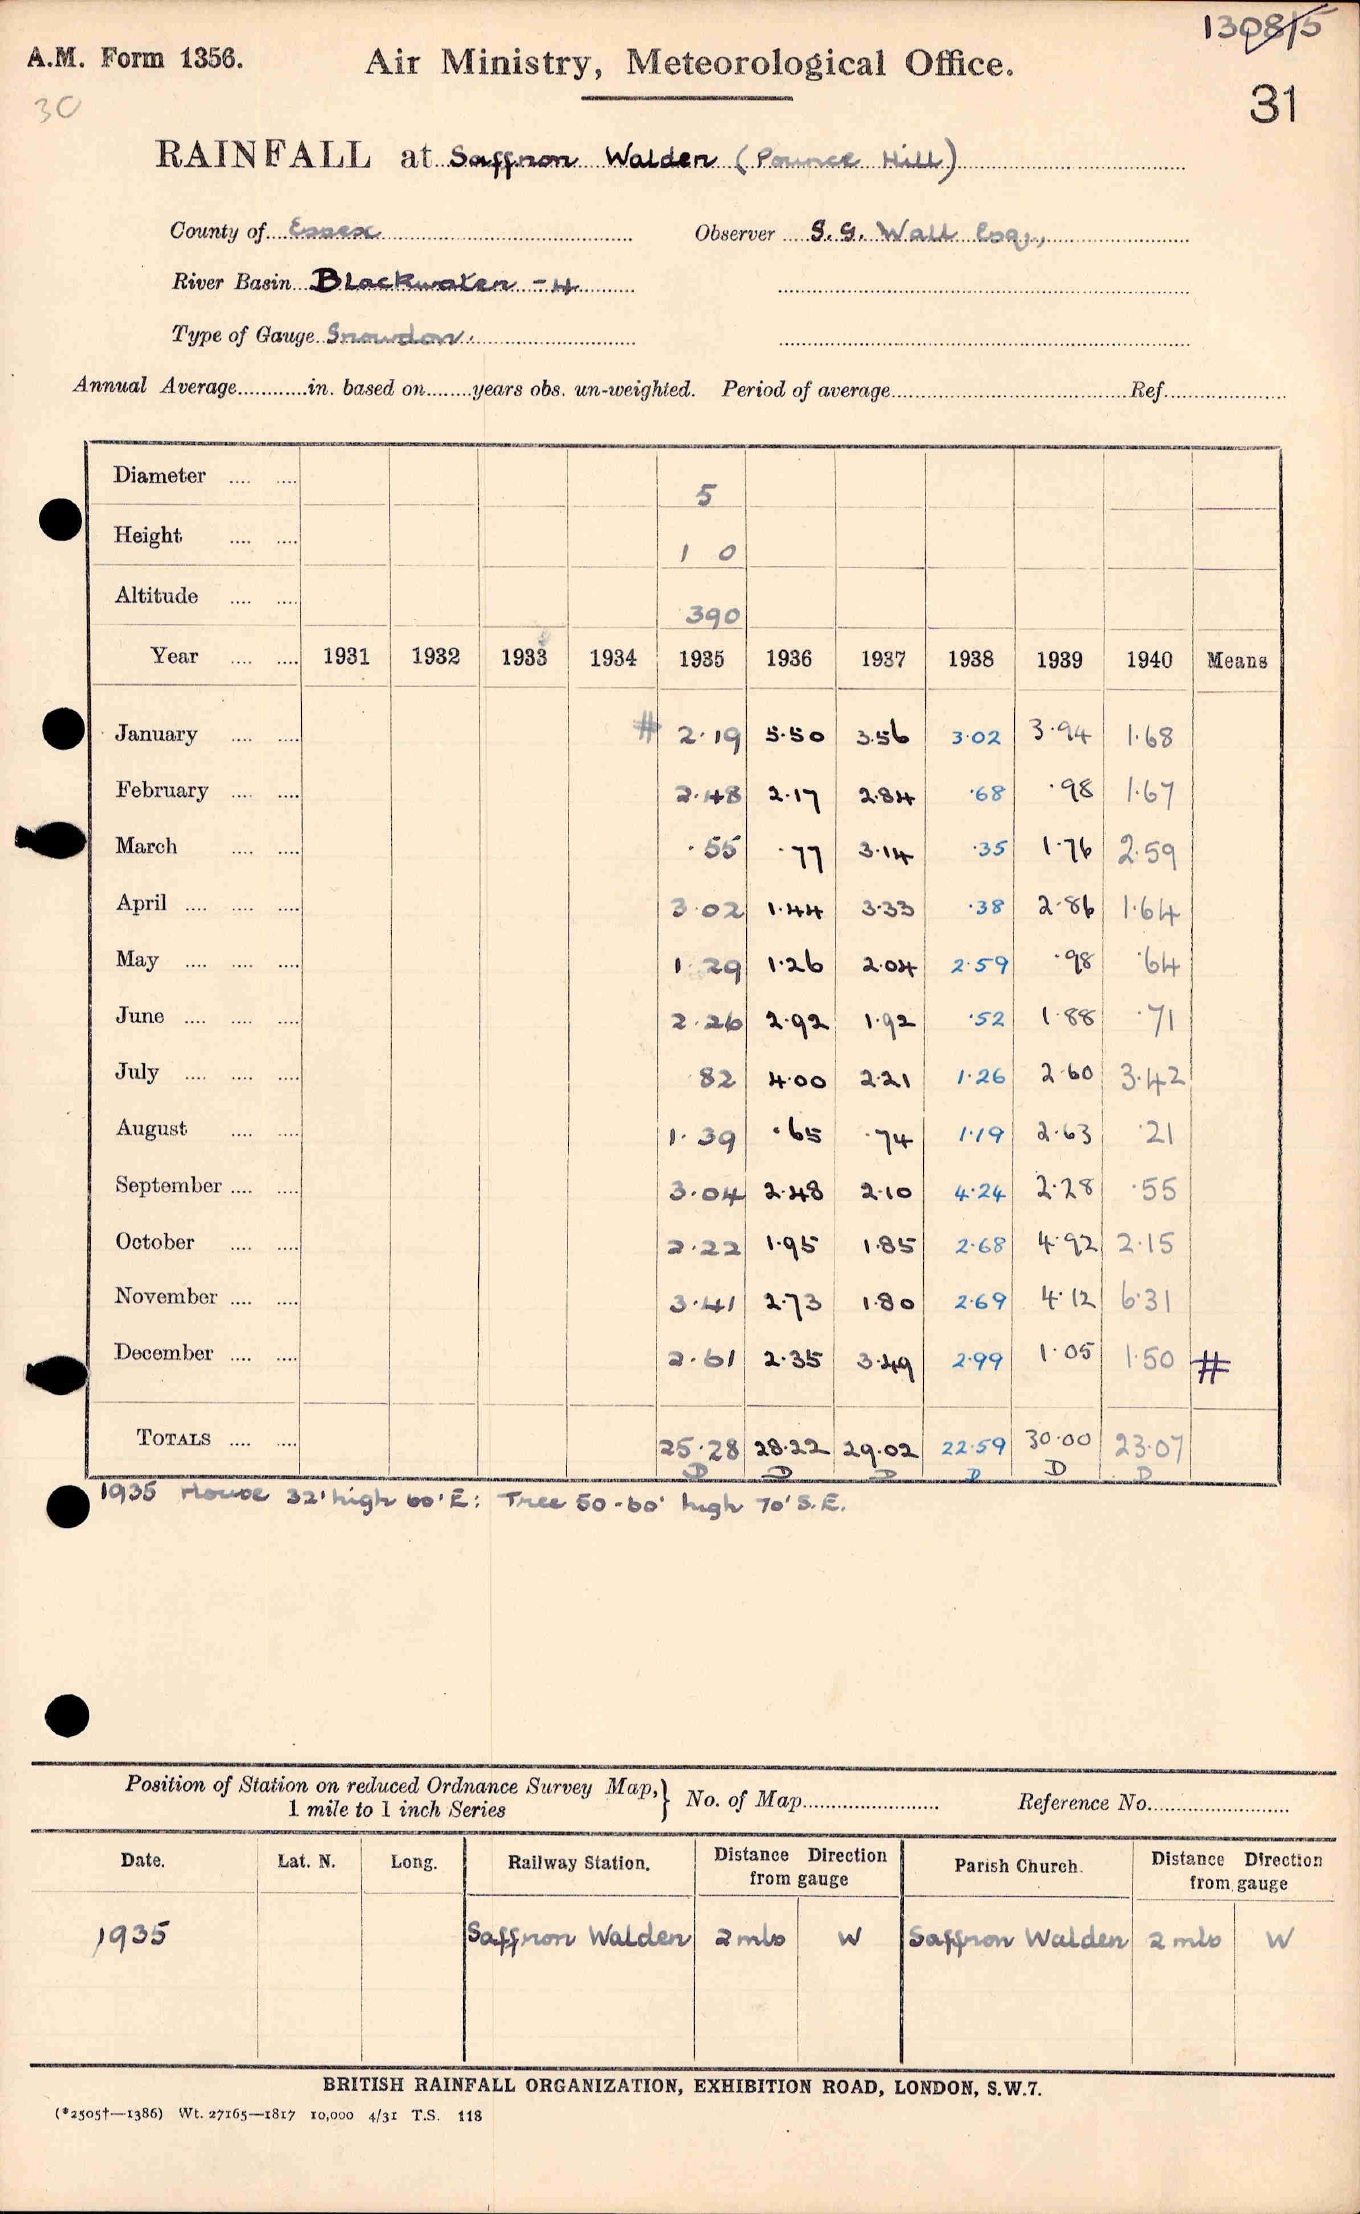 1308/5
A.M. Form 1356. Air Ministry, Meteorological Office.
30
31
RAINFALL at Saffron Walden (Pounce Hill)
County of Essex Observer S. G. Wall Esq.,
River Basin Blackwater - 4
Type of Gauge Snowdon.
Annual Average............in. based on........years obs. un-weighted. Period of average..........Ref..........
Diameter .... .... 5
Height .... .... 1 0
Altitude .... .... 390
Year .... .... 1931 1932 1933 1934 1935 1936 1937 1938 1939 1940 Means
January .... .... # 2.19 5.50 3.56 3.02 3.94 1.68
February .... .... 2.48 2.17 2.84 .68 .98 1.67
March .... .... .55 .77 3.14 .35 1.76 2.59
April .... .... .... 3.02 1.44 3.33 .38 2.86 1.64
May .... .... .... 1.29 1.26 2.04 2.59 .98 .64
June .... .... .... 2.26 2.92 1.92 .52 1.88 .71
July .... .... .... 82 4.00 2.21 1.26 2.60 3.42
August .... .... 1.39 .65 .74 1.19 2.63 .21
September .... .... 3.04 2.48 2.10 4.24 2.28 .55
October .... .... 2.22 1.95 1.85 2.68 4.92 2.15
November .... .... 3.41 2.73 1.80 2.69 4.12 6.31
December .... .... 2.61 2.35 3.49 2.99 1.05 1.50 #
TOTALS .... .... 25.28 28.22 29.02 22.59 30.00 23.07
D D D D D D
1935 House 32' high 60' E; Tree 50-60' high 70' S.E.
Position of Station on reduced Ordnance Survey Map, } No. of Map.......... Reference No..........
1 mile to 1 inch Series
Date. Lat. N. Long. Railway Station. Distance Direction from gauge Parish Church. Distance Direction from gauge
1935 Saffron Walden 2 mls W Saffron Walden 2 mls W
BRITISH RAINFALL ORGANIZATION, EXHIBITION ROAD, LONDON, S.W.7.
(*2505†—1386) Wt. 27165—1817 10,000 4/31 T.S. 118